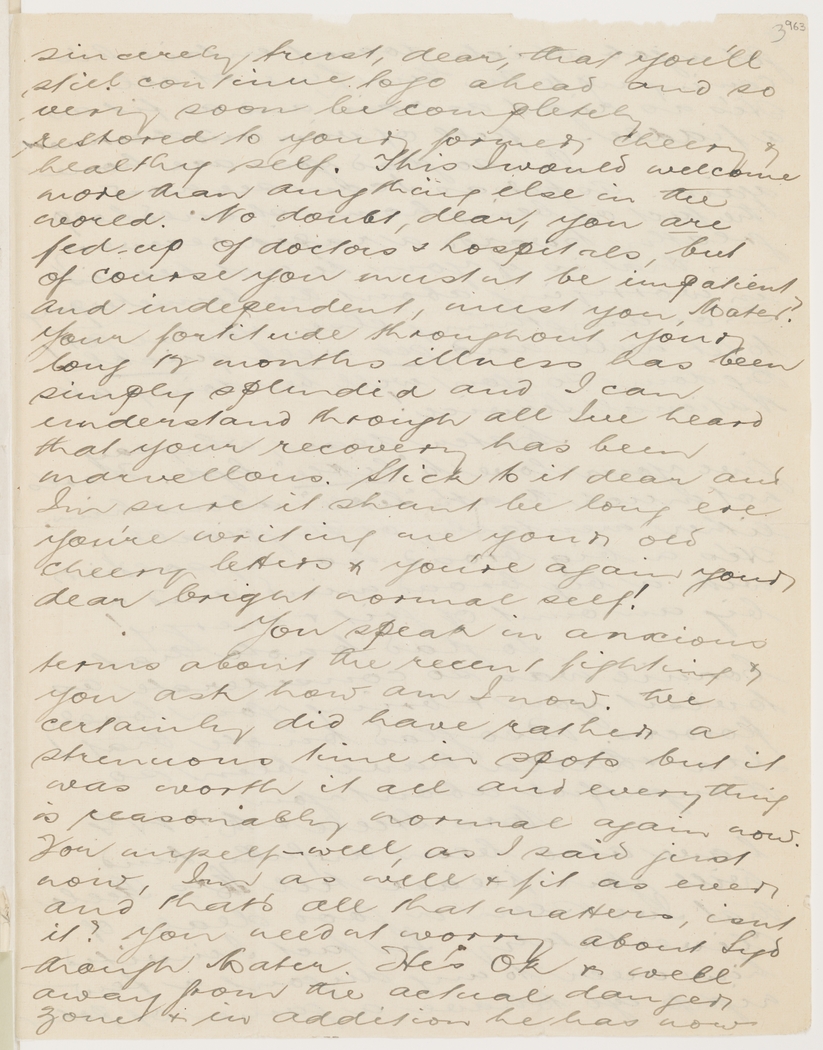 3963
sincerely trust, dear, that you'll
still continue to go ahead and so
very soon be completely
restored to your former cheery &
healthy self. This I would welcome
more than anything else in the
world. No doubt, dear, you are
fed-up of doctors & hospitals, but
of course you mustnt be impatient
and independent, must you, Mater?
Your fortitude throughout your
long 12 months illness has been
simply splendid and I can
understand through all Ive heard
that your recovery has been
marvellous. Stick to it dear and
I'm sure it shant be long ere
you're writing me your old
cheery letters & you're again your
dear bright normal self!
You speak in anxious
terms about the recent fighting &
you ask how am I now. We
certainly did have rather a
strenuous time in spots but it
was worth it all and everything
is reasonably normal again now.
For myself—well, as I said just
now, I'm as well & fit as ever
and that's all that matters, isnt
it? You neednt worry about Syd
though Mater. He's OK & well
away from the actual danger
zone & in addition he has now